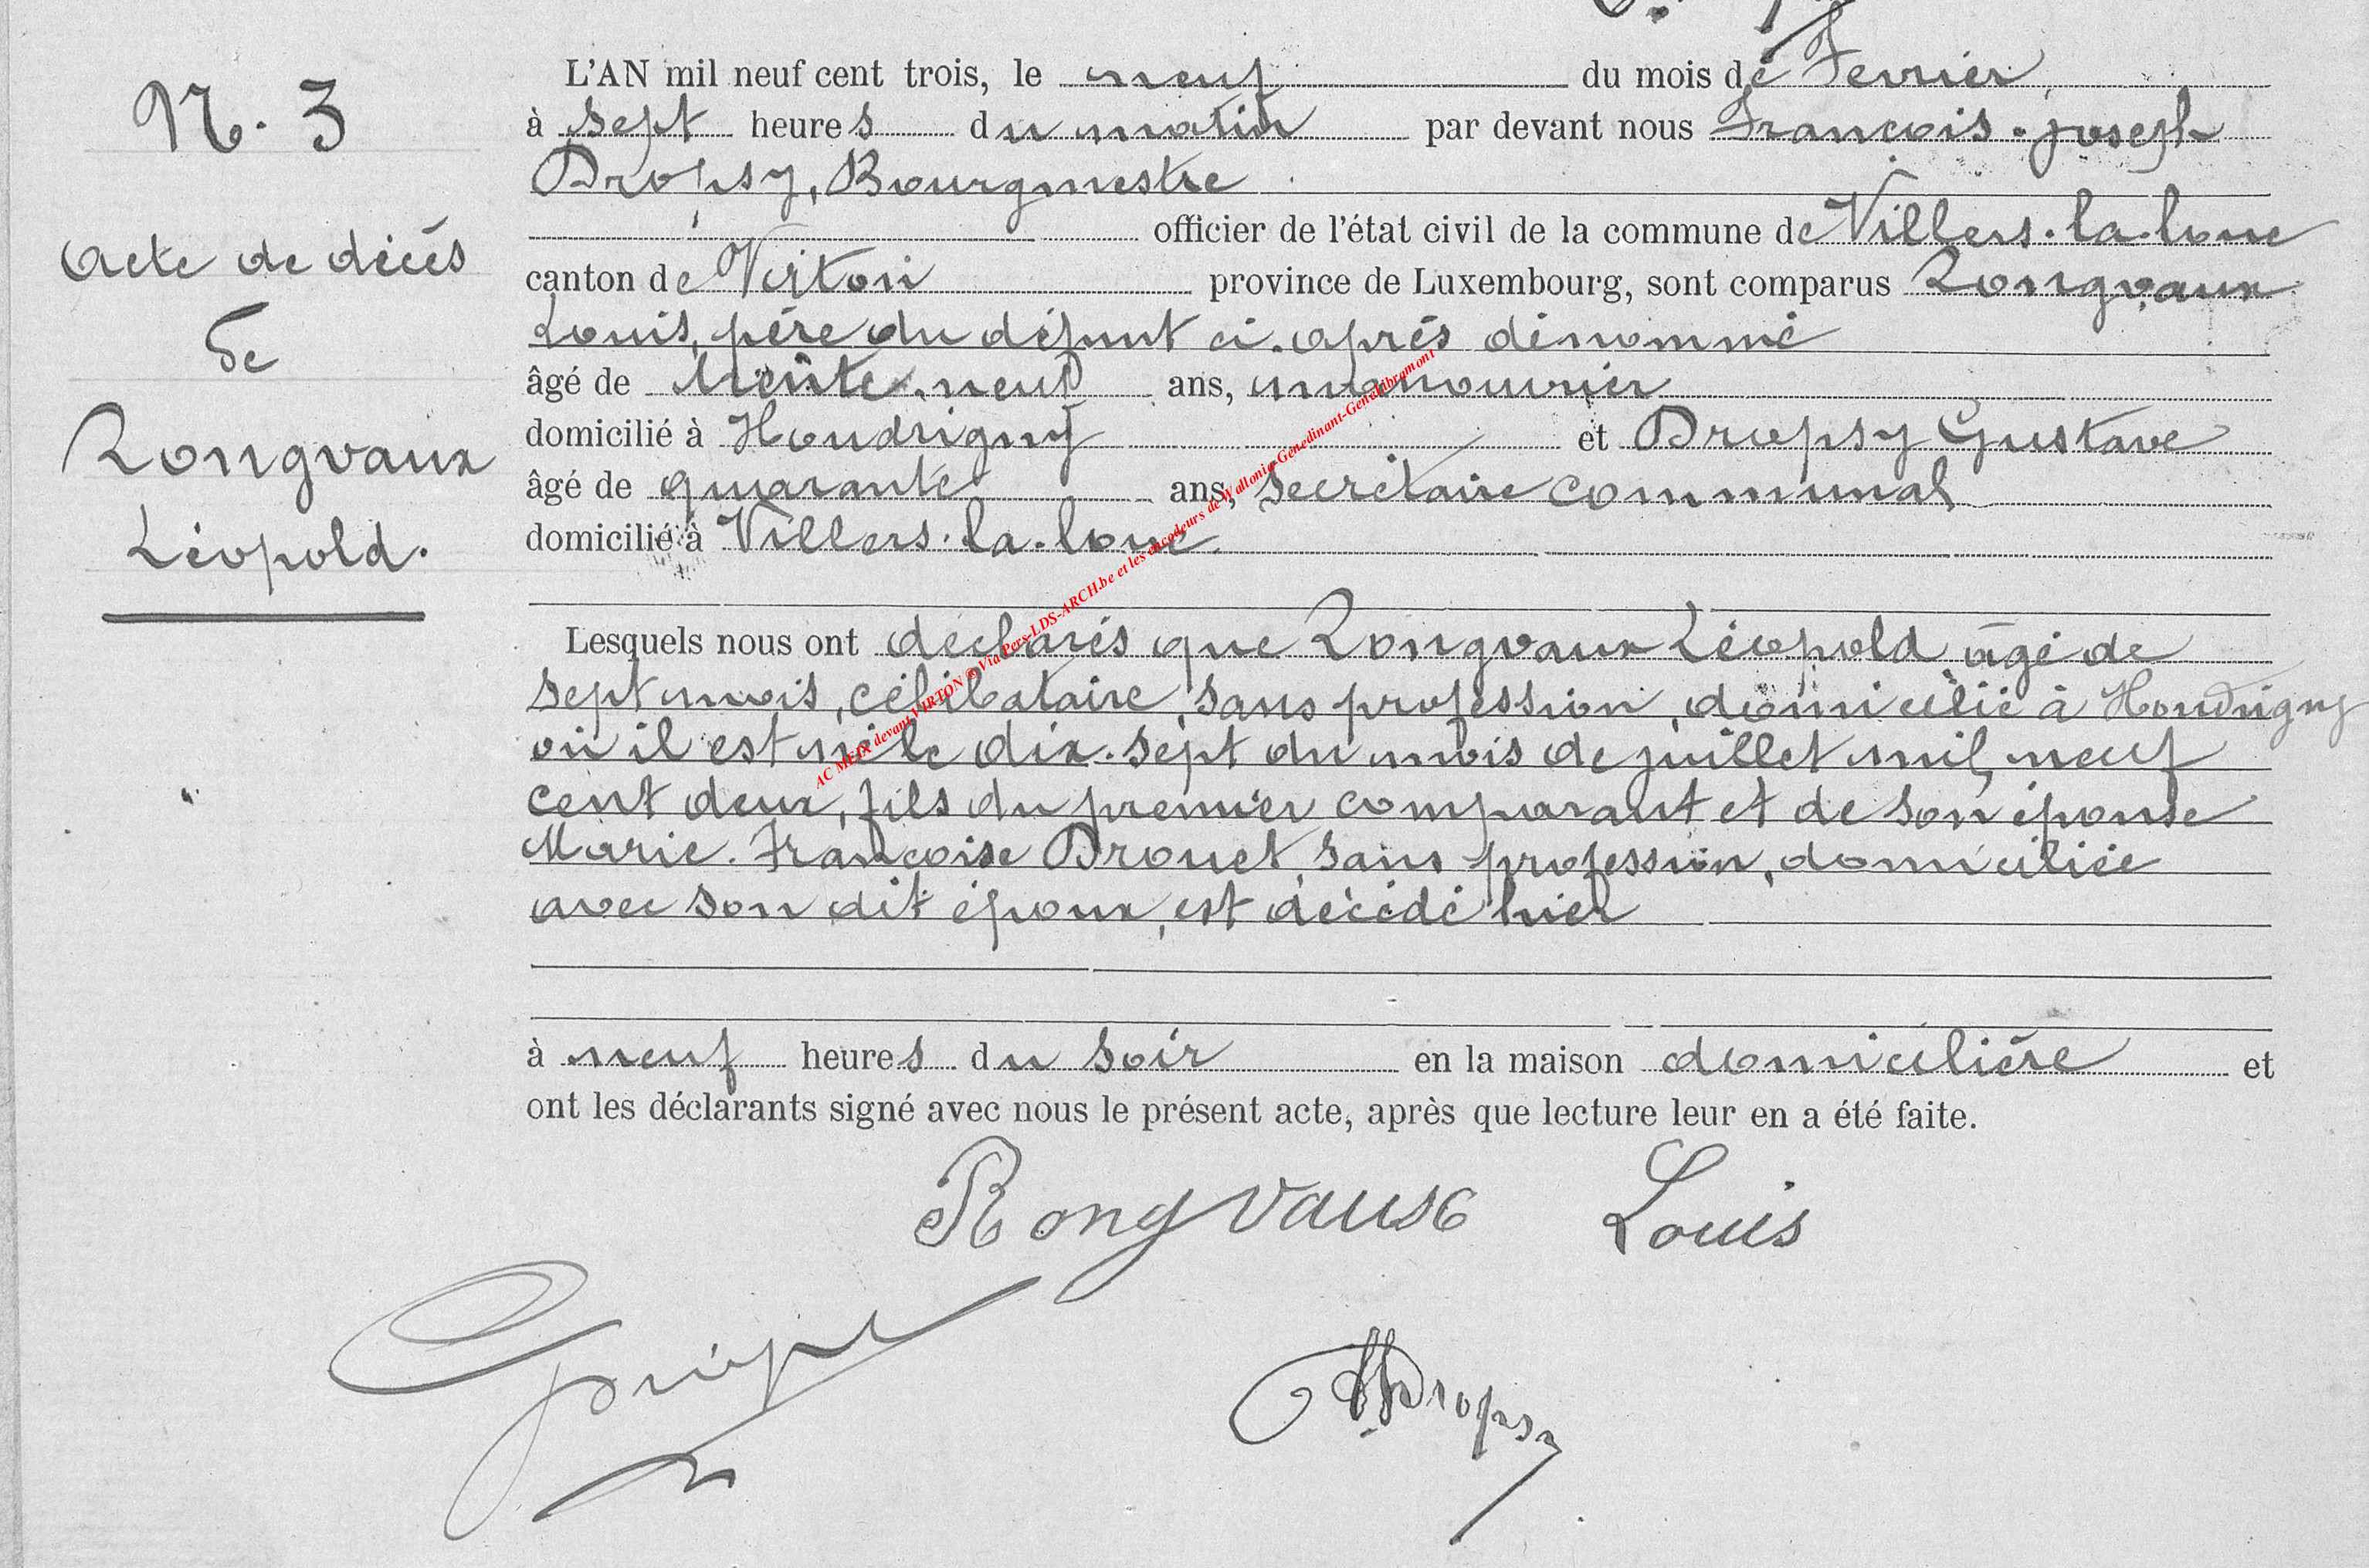 N. 3
Acte de décès
de
Rongvaux
Léopold.
L'AN mil neuf cent trois, le neuf du mois de Fevrier
à sept heures du matin par devant nous François-joseph
Dropsy, Bourgmestre
officier de l'état civil de la commune de Villers-la-loue
canton de Virton province de Luxembourg, sont comparus Rongvaux
Louis, père du défunt ci-après dénommé
âgé de trente-neuf ans, manouvrier
domicilié à Houdrigny et Dropsy Gustave
âgé de quarante ans, secrétaire communal
domicilié à Villers-la-loue.
Lesquels nous ont déclarés que Rongvaux Léopold, âgé de
sept mois, célibataire, sans profession, domicilié à Houdrigny
où il est né le dix-sept du mois de juillet mil neuf
cent deux, fils du premier comparant et de son épouse
Marie-Françoise Drouet, sans profession, domiciliée
avec son dit époux, est décédé hier
à neuf heures du soir en la maison domicilière et
ont les déclarants signé avec nous le présent acte, après que lecture leur en a été faite.
Rongvaux Louis
Dropsy
AC MEIX devant VIRTON @ Via Pers-LDS-ARCH.be et les encodeurs de Wallonie-Genedinant-Genealibramont